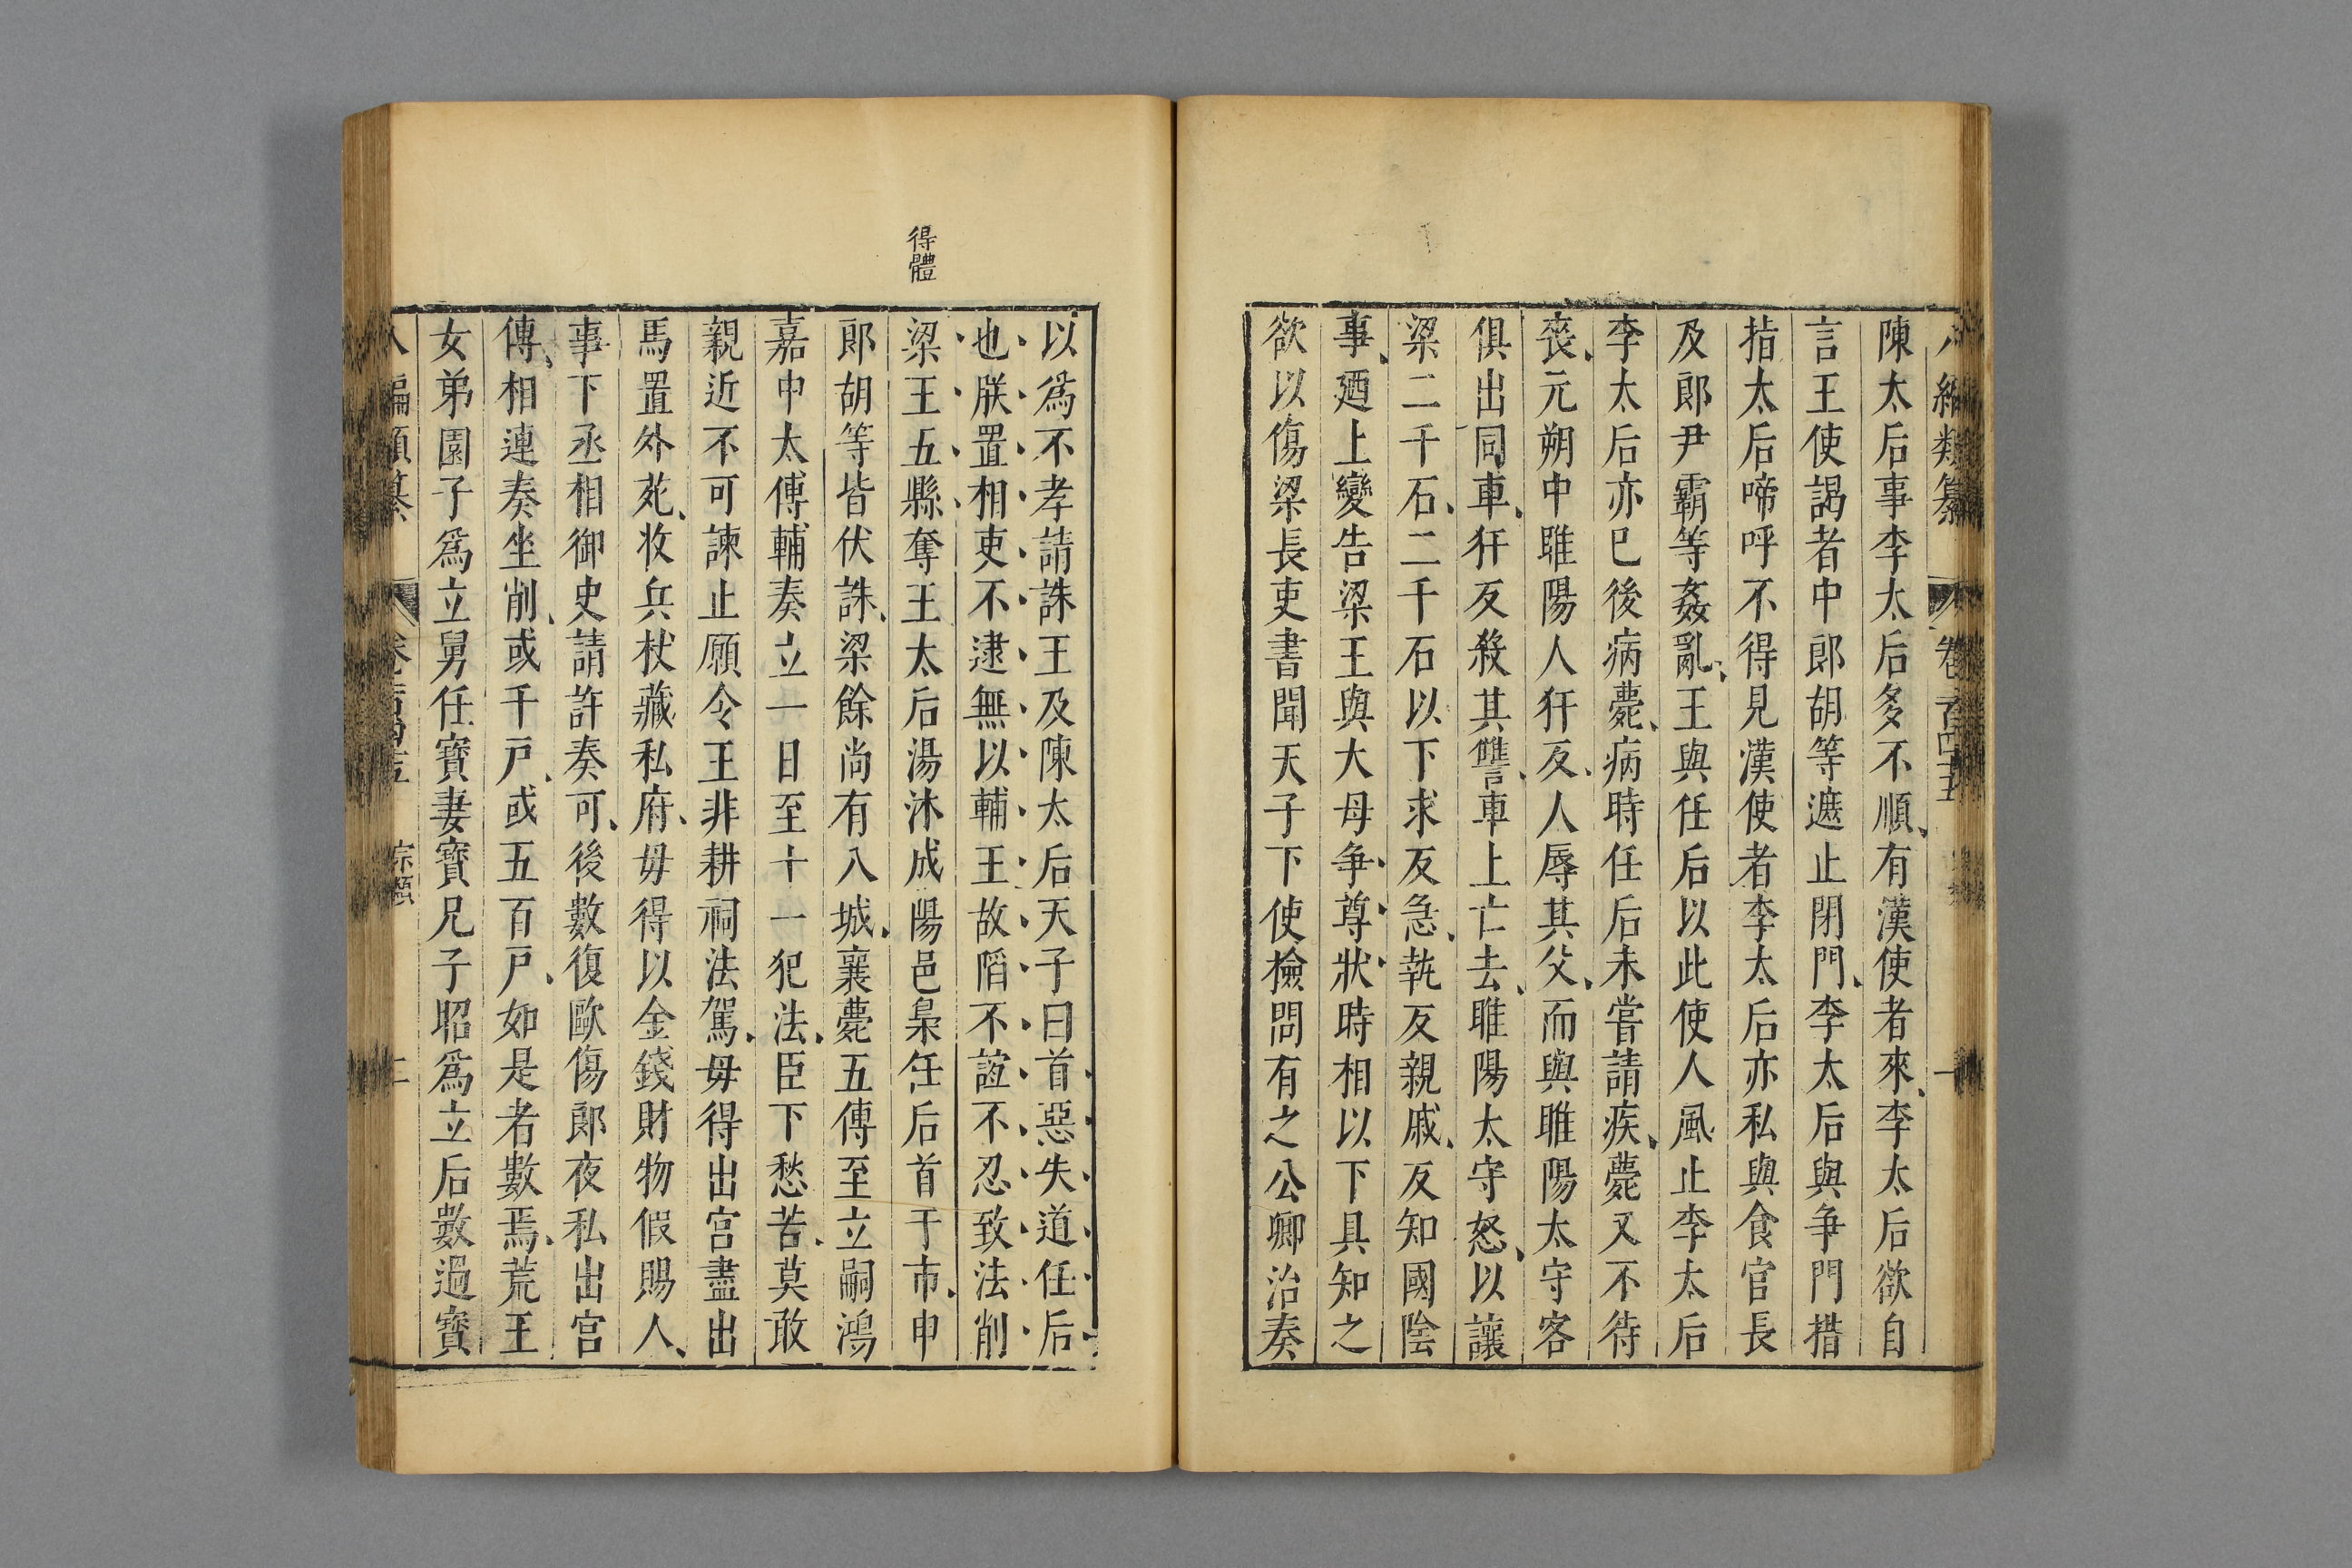 編類纂 卷
陳太后事李太后多不順有漢使者來李太后欲自
言王使謁者中郎胡等遮止閉門李太后與爭門措
指太后啼呼不得見漢使者李太后亦私與食官長
及郎尹霸等姦亂王與任后以此使人風止李太后
李太后亦已後病薨病時任后未嘗請疾薨又不待
喪元朔中睢陽人犴反人辱其父而與睢陽太守客
俱出同車犴反殺其讐車上亡去睢陽太守怒以讓
梁二千石二千石以下求反急執反親戚反知國陰
事廼上變告梁王與大母争尊狀時相以下具知之
欲以傷梁長吏書聞天子下使檢問有之公卿治奏
得體
以爲不孝請誅王及陳太后天子曰首惡失道任后
也朕置相吏不逮無以輔王故陷不誼不忍致法削
梁王五縣奪王太后湯沐成陽邑梟任后首于市中
郎胡等皆伏誅梁餘尚有八城襄薨五傳至立嗣鴻
嘉中太傅輔奏立一日至十一犯法臣下愁苦莫敢
親近不可諫止願令王非耕祠法駕毋得出宫盡出
馬置外苑收兵杖藏私府毋得以金錢財物假賜人
事下丞相御史請許奏可後數復歐傷郎夜私出宫
傳相連奏坐削或千戸或五百戸如是者數焉荒王
女弟園子爲立舅任寳妻寳兄子昭爲立后數過寳
編類纂 卷 二